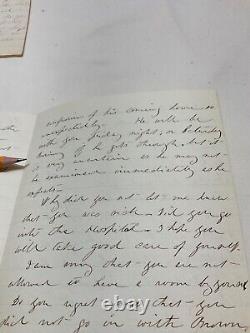 surprise of his coming down so
unexpectedly. He will be
with you Friday night, or Saturday
Evening if he gets through, but it
is very uncertain as he may not
be examined immediately as he
expects.
Why did you not let me know
that you was sick. Did you go
into the Hospital. I hope you
will take good care of yourself
I am sorry that you are not
allowed to have a room by yourself
Do you regret any that you
did not go in with Brown